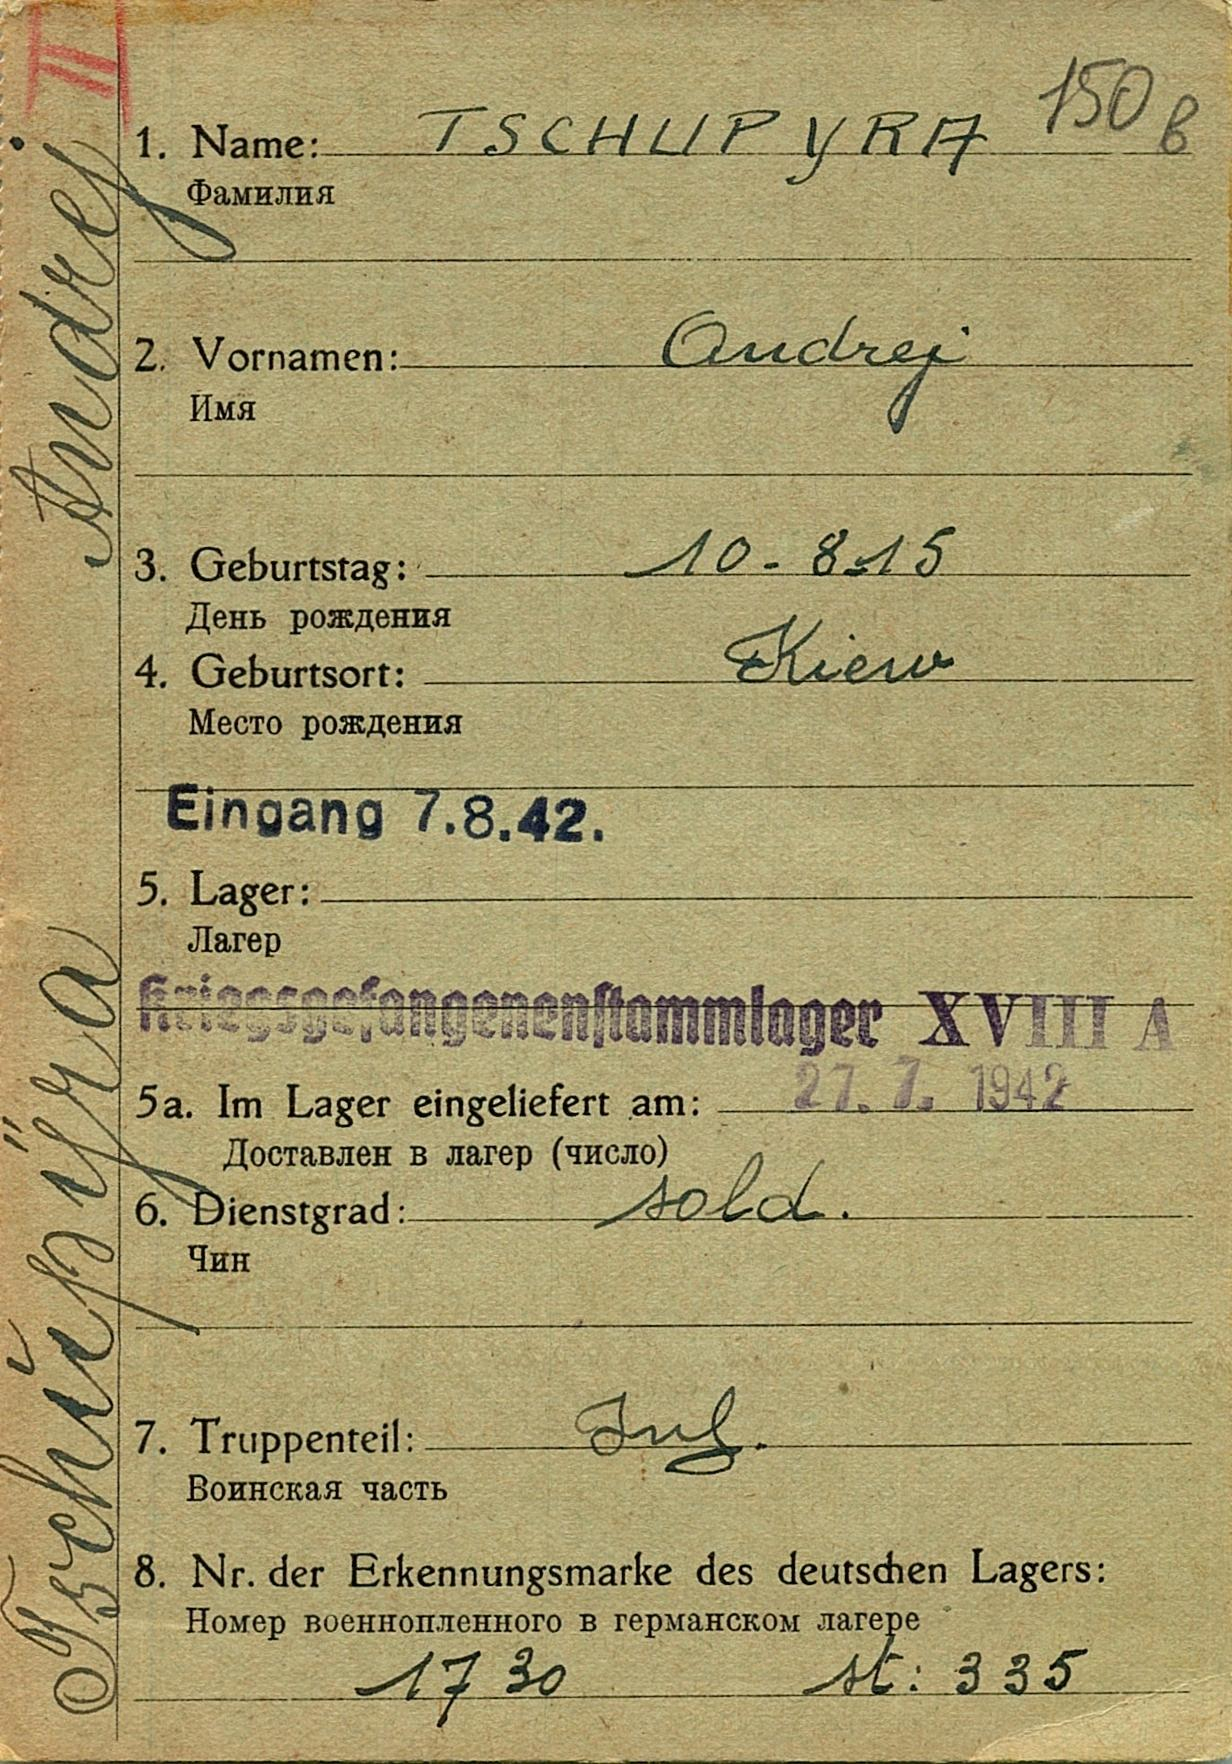 II
150 B
1. Name: TSCHUPYRA
Фамилия
2. Vornamen: Andrej
Имя
3. Geburtstag: 10-8-15
День рождения
4. Geburtsort: Kiew
Место рождения
Eingang 7.8.42.
5. Lager:
Лагер
Kriegsgefangenenstammlager XVIII A
5a. Im Lager eingeliefert am: 27. 7. 1942
Доставлен в лагер (число)
6. Dienstgrad: sold.
Чин
7. Truppenteil: Inf.
Воинская часть
8. Nr. der Erkennungsmarke des deutschen Lagers:
Номер военнопленного в германском лагере
1730 st: 335
Tschupÿra Andrej